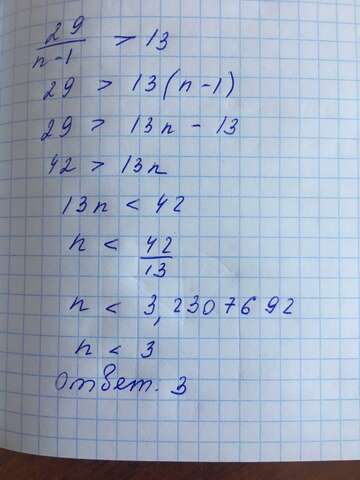 29/(n-1) > 13
29 > 13(n-1)
29 > 13n - 13
42 > 13n
13n < 42
n < 42/13
n < 3,2307692
n < 3
ответ: 3